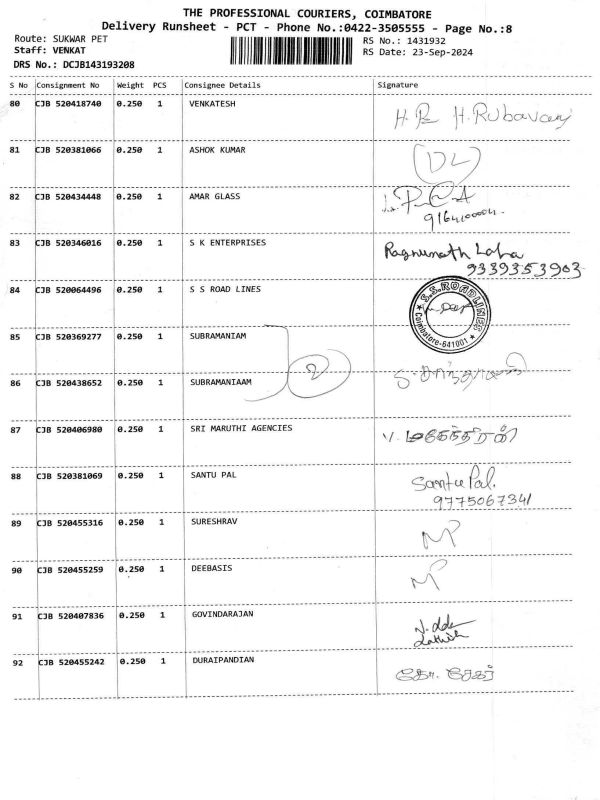 THE PROFESSIONAL COURIERS, COIMBATORE
Delivery Runsheet - PCT - Phone No.:0422-3505555 - Page No.:8
Route: SUKWAR PET RS No.: 1431932
Staff: VENKAT RS Date: 23-Sep-2024
DRS No.: DCJB143193208
S No Consignment No Weight PCS Consignee Details Signature
80 CJB 520418740 0.250 1 VENKATESH
81 CJB 520381066 0.250 1 ASHOK KUMAR (DL)
82 CJB 520434448 0.250 1 AMAR GLASS
83 CJB 520346016 0.250 1 S K ENTERPRISES Raghunath Laha
9339353903
84 CJB 520064496 0.250 1 S S ROAD LINES S.S.ROADLINES Coimbatore-641001
85 CJB 520369277 0.250 1 SUBRAMANIAM
2
86 CJB 520438652 0.250 1 SUBRAMANIAAM
87 CJB 520406980 0.250 1 SRI MARUTHI AGENCIES
88 CJB 520381069 0.250 1 SANTU PAL Santu Pal.
9775067341
89 CJB 520455316 0.250 1 SURESHRAV
90 CJB 520455259 0.250 1 DEEBASIS
91 CJB 520407836 0.250 1 GOVINDARAJAN
92 CJB 520455242 0.250 1 DURAIPANDIAN